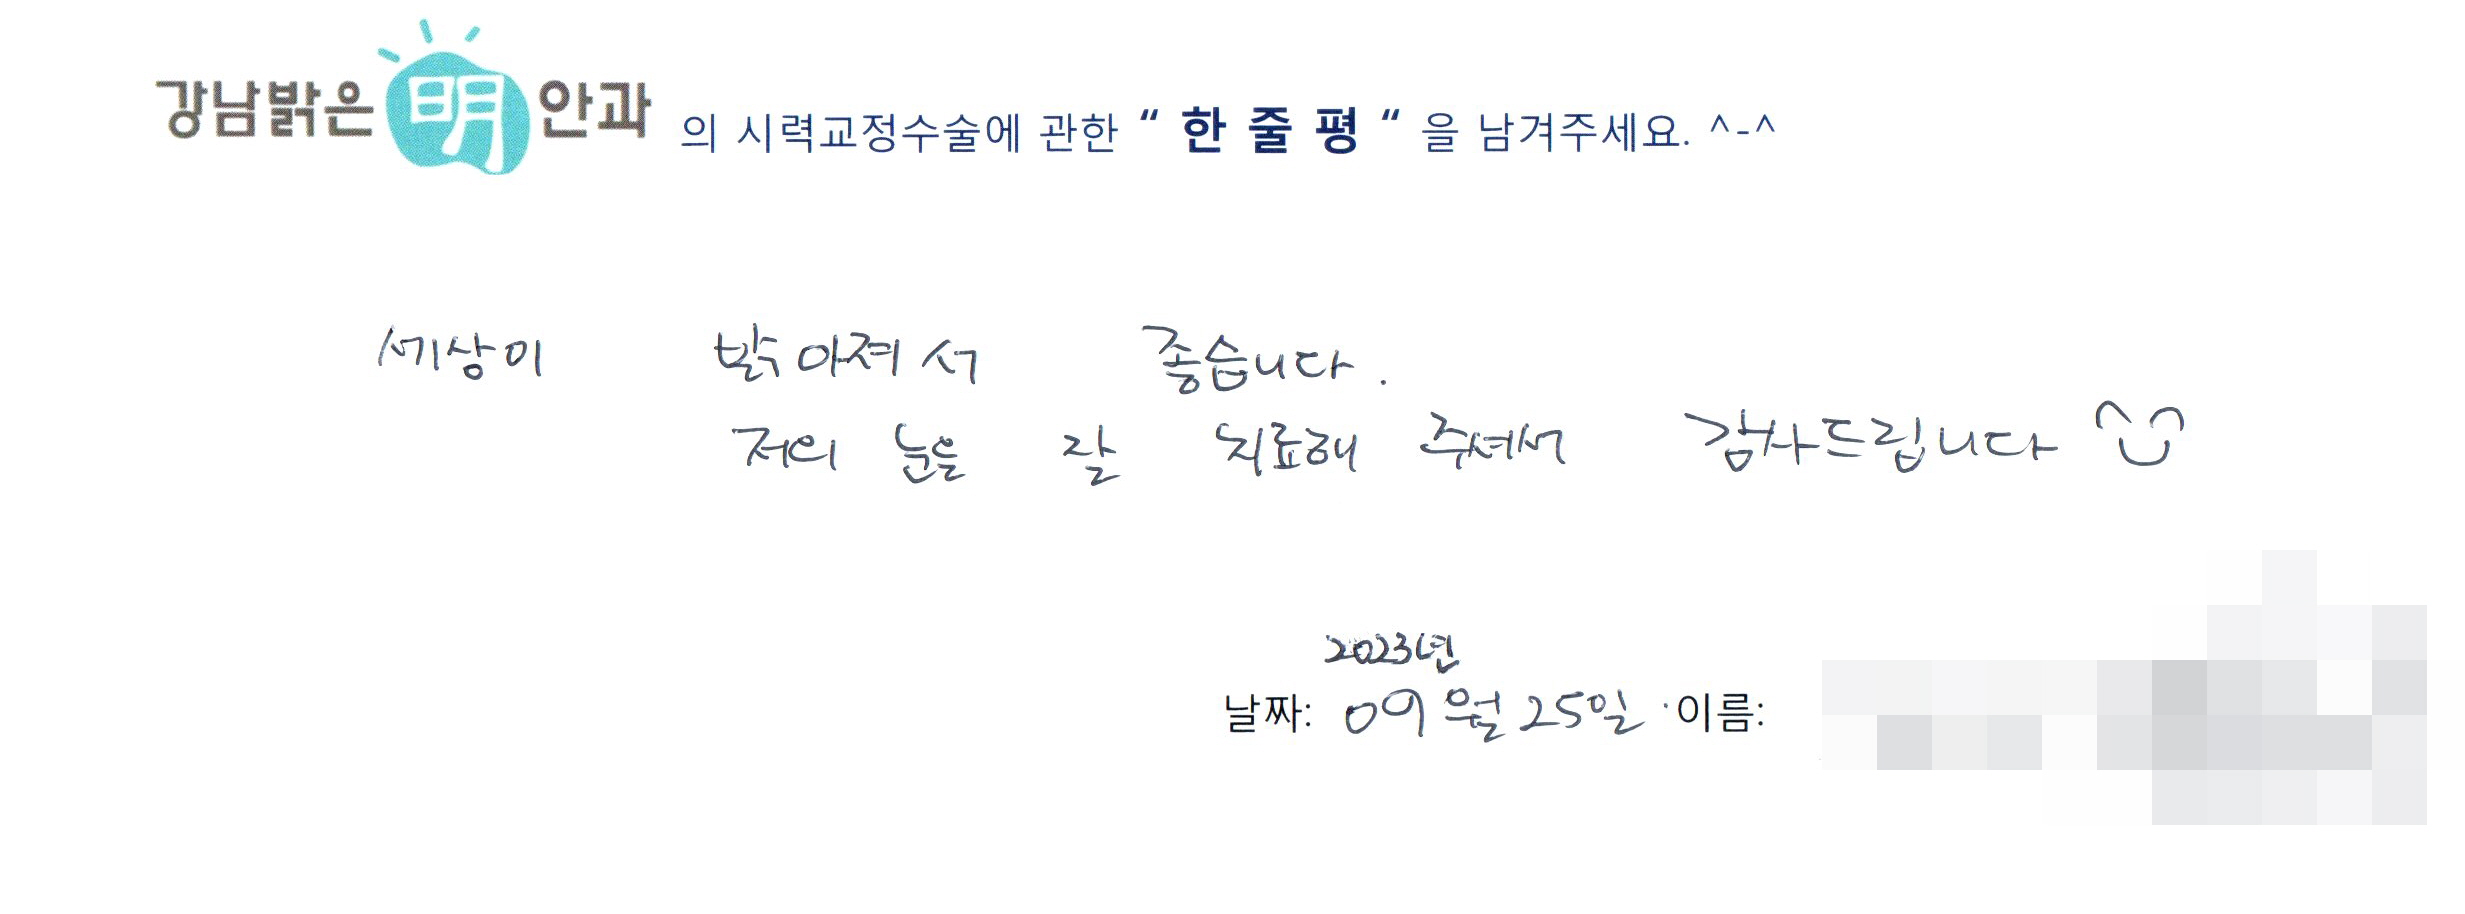 강남밝은明안과 의 시력교정수술에 관한 “ 한 줄 평 “ 을 남겨주세요. ^-^
세상이 밝아져서 좋습니다.
저의 눈을 잘 치료해 주셔서 감사드립니다
2023년
날짜: 09월 25일 이름: